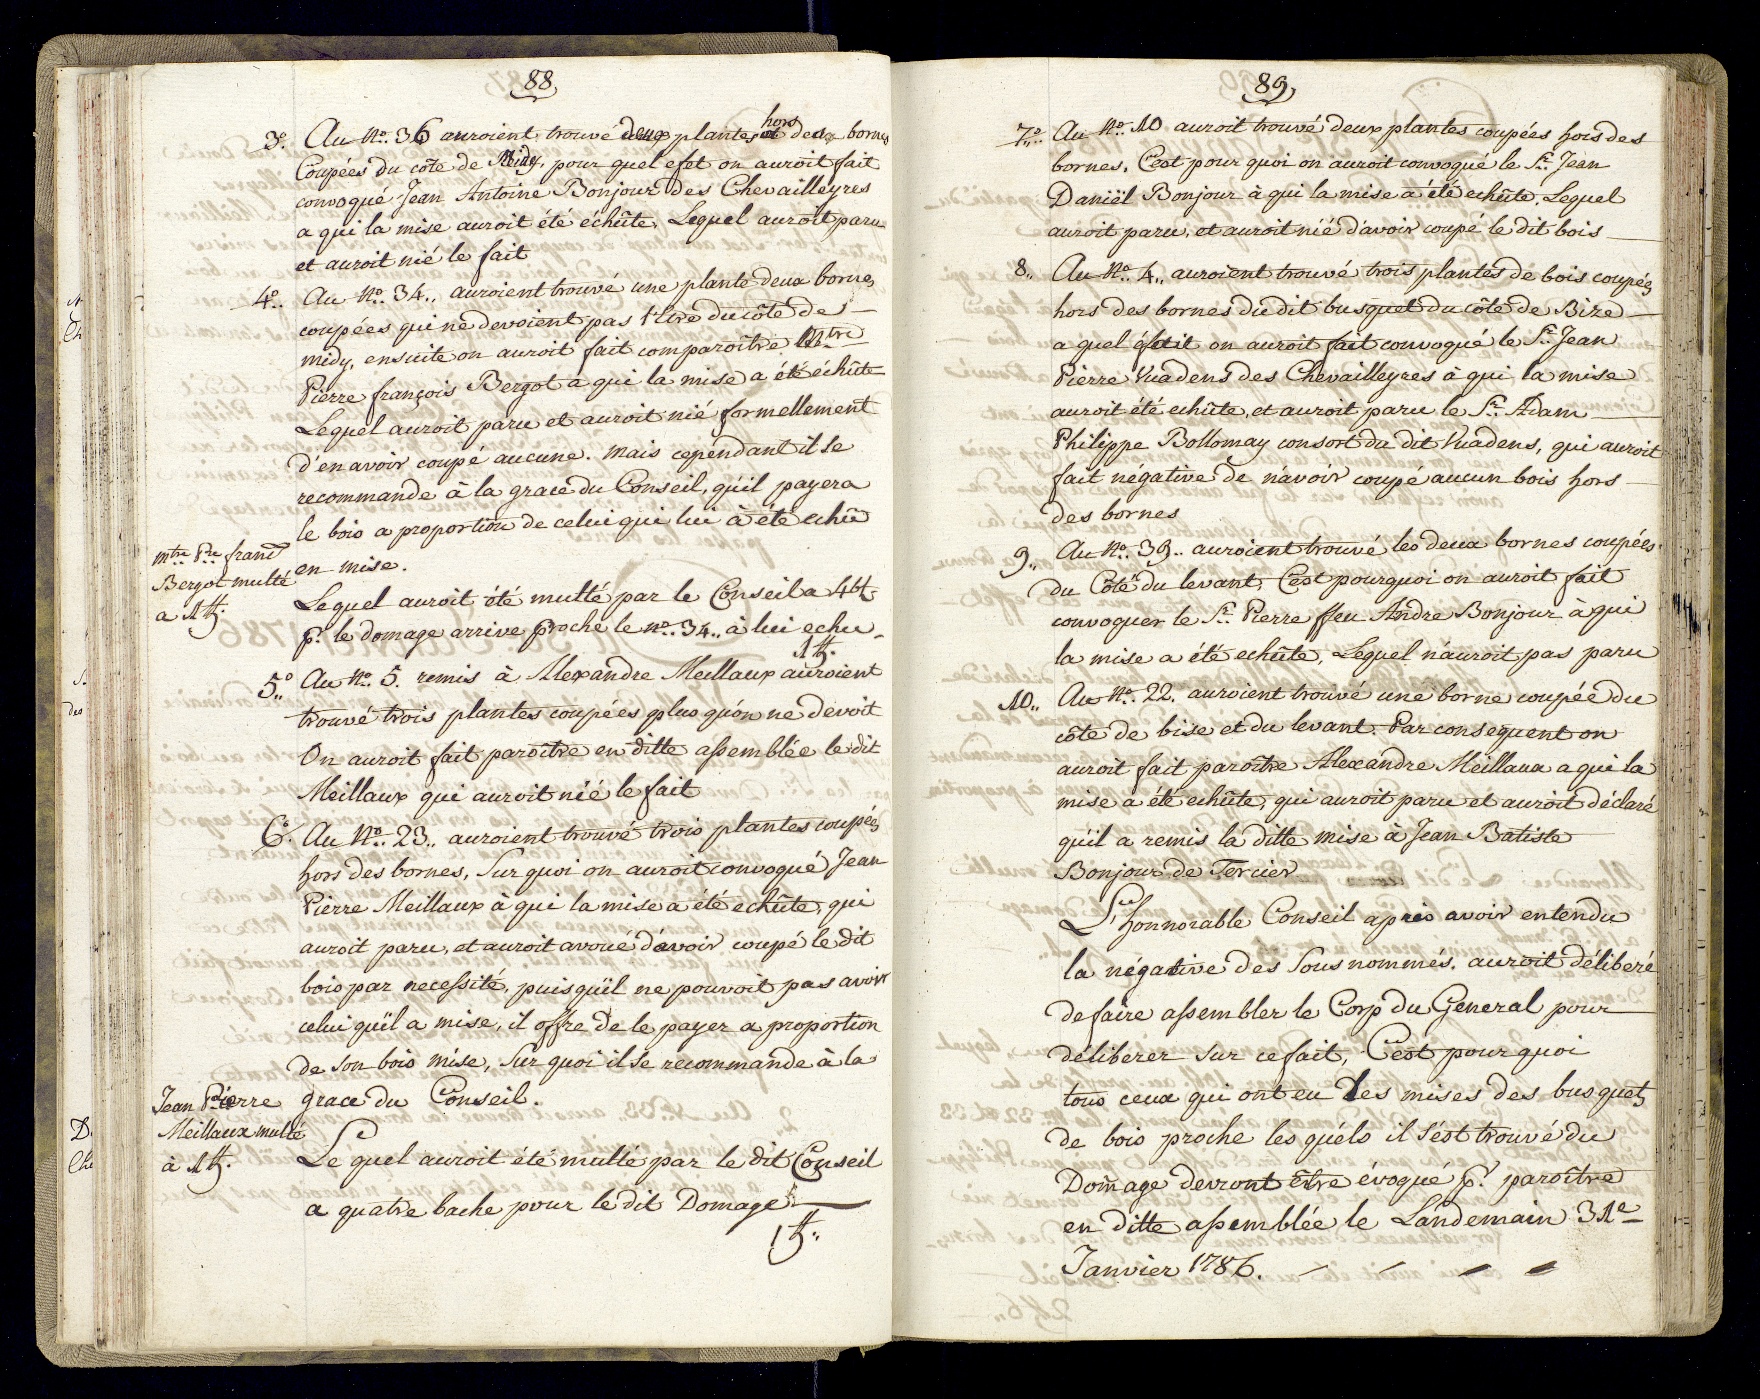 88
3.° Au N.° 36 auroient trouvé deux plantes hors des bornes
Coupées du côté de Midy, pour quel efet on auroit fait
convoqué Jean Antoine Bonjour des Chevailleyres
a qui la mise auroit été échûte, Lequel auroit paru
et auroit nié le fait
4.° Au N.° 34., auroient trouvé une plante deux bornes
coupées qui ne devoient pas l'être du côté de
midy, ensuite on auroit fait comparoître Mtre
Pierre françois Bergot a qui la mise a été échûte
Lequel auroit paru et auroit nié formellement
d'en avoir coupé aucune. mais cependant il se
recommande à la grace du Conseil, qu'il payera
le bois a proportion de celui qui lui à été echû
en mise.
mtre Pre franc
Bergot multé
a 1 ₶.
Lequel auroit été multé par le Conseil a 4 ₶.
pr. le domage arrive proche le N.° 34., à lui echu.
1 ₶.
5.° Au N.° 5. remis à Alexandre Meillaux auroient
trouvé trois plantes coupées plus qu'on ne devoit
On auroit fait paroître en ditte assemblée le dit
Meillaux qui auroit nié le fait
6.° Au N.° 23., auroient trouvé trois plantes coupées
hors des bornes, Sur quoi on auroit convoqué Jean
Pierre Meillaux à qui la mise a été echûte, qui
auroit paru, et auroit avoué d'avoir coupé le dit
bois par necessité, puisqu'il ne pouvoit pas avoir
celui qu'il a mise, il offre de le payer a proportion
de son bois mise, Sur quoi il se recommande à la
grace du Conseil.
Jean Pierre
Meillaux multé
à 1 ₶.
Le quel auroit été multé par le dit Conseil
a quatre bache pour le dit Domage
1 ₶.
89
7.° Au N.° 10 auroit trouvé deux plantes coupées hors des
bornes, C'est pour quoi on auroit convoqué le Sr. Jean
Daniël Bonjour à qui la mise a été echûte, Lequel
auroit paru, et auroit nié d'avoir coupé le dit bois
8., Au N.° 4., auroient trouvé trois plantes de bois coupées
hors des bornes du dit busquet du côte de Bize
a quel éfait on auroit fait convoqué le Sr. Jean
Pierre Vuadens des Chevailleyres à qui la mise
auroit été echûte, et auroit paru le Sr. Adam
Philippe Bollomay consort du dit Vuadens, qui auroit
fait négative de n'avoir coupé aucun bois hors
des bornes
9., Au N.° 39., auroient trouvé les deux bornes coupées
du Côté du levant, C'est pourquoi on auroit fait
convoquer le Sr. Pierre ffeu Andre Bonjour à qui
la mise a été echûte, Lequel n'auroit pas paru
10., Au N.° 22. auroient trouvé une borne coupée du
côte de bise et du levant. Par consequent on
auroit fait paroître Alexandre Meillaux a qui la
mise a été echûte, qui auroit paru et auroit déclaré
qu'il a remis la ditte mise à Jean Batiste
Bonjour de Tercier
L'honnorable Conseil après avoir entendu
la négative des Sous nommés. auroit déliberé
de faire assembler le Corp du General pour
déliberer sur ce fait, C'est pour quoi
tous ceux qui ont eu des mises des busquets
de bois proche les quéls il s'est trouvé du
Domage devront être évoqué pr. paroître
en ditte assemblée le Landemain 31e
Janvier 1786.